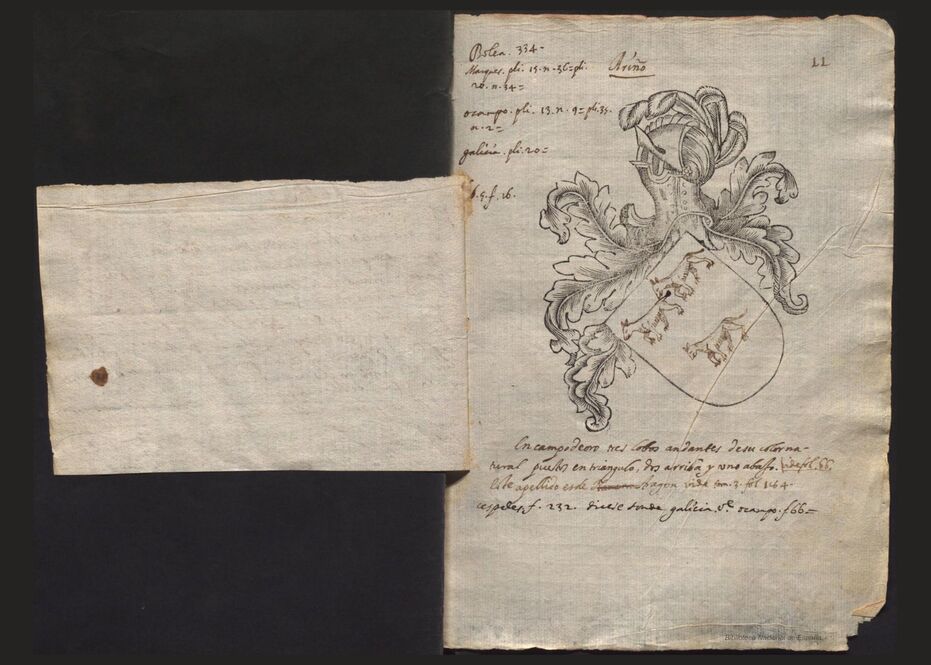 Bolea. 334-
Marques. pli. 15. n. 36= pli.
20. n. 34=
ocampo. pli. 13. n. 9= pli. 35.
n. 2=
galicia. pli. 20=
5. f. 16.
Ariño
11
En campo de oro tres lobos andantes de su color na-
tural puestos en triangulo, dos arriba y uno abajo. vide fol. 66.
Este apellido es de Aragon vide tom. 3. fol 164.
cespedes f. 232. dice donde galicia. ocampo. f 66=
Biblioteca Nacional de España